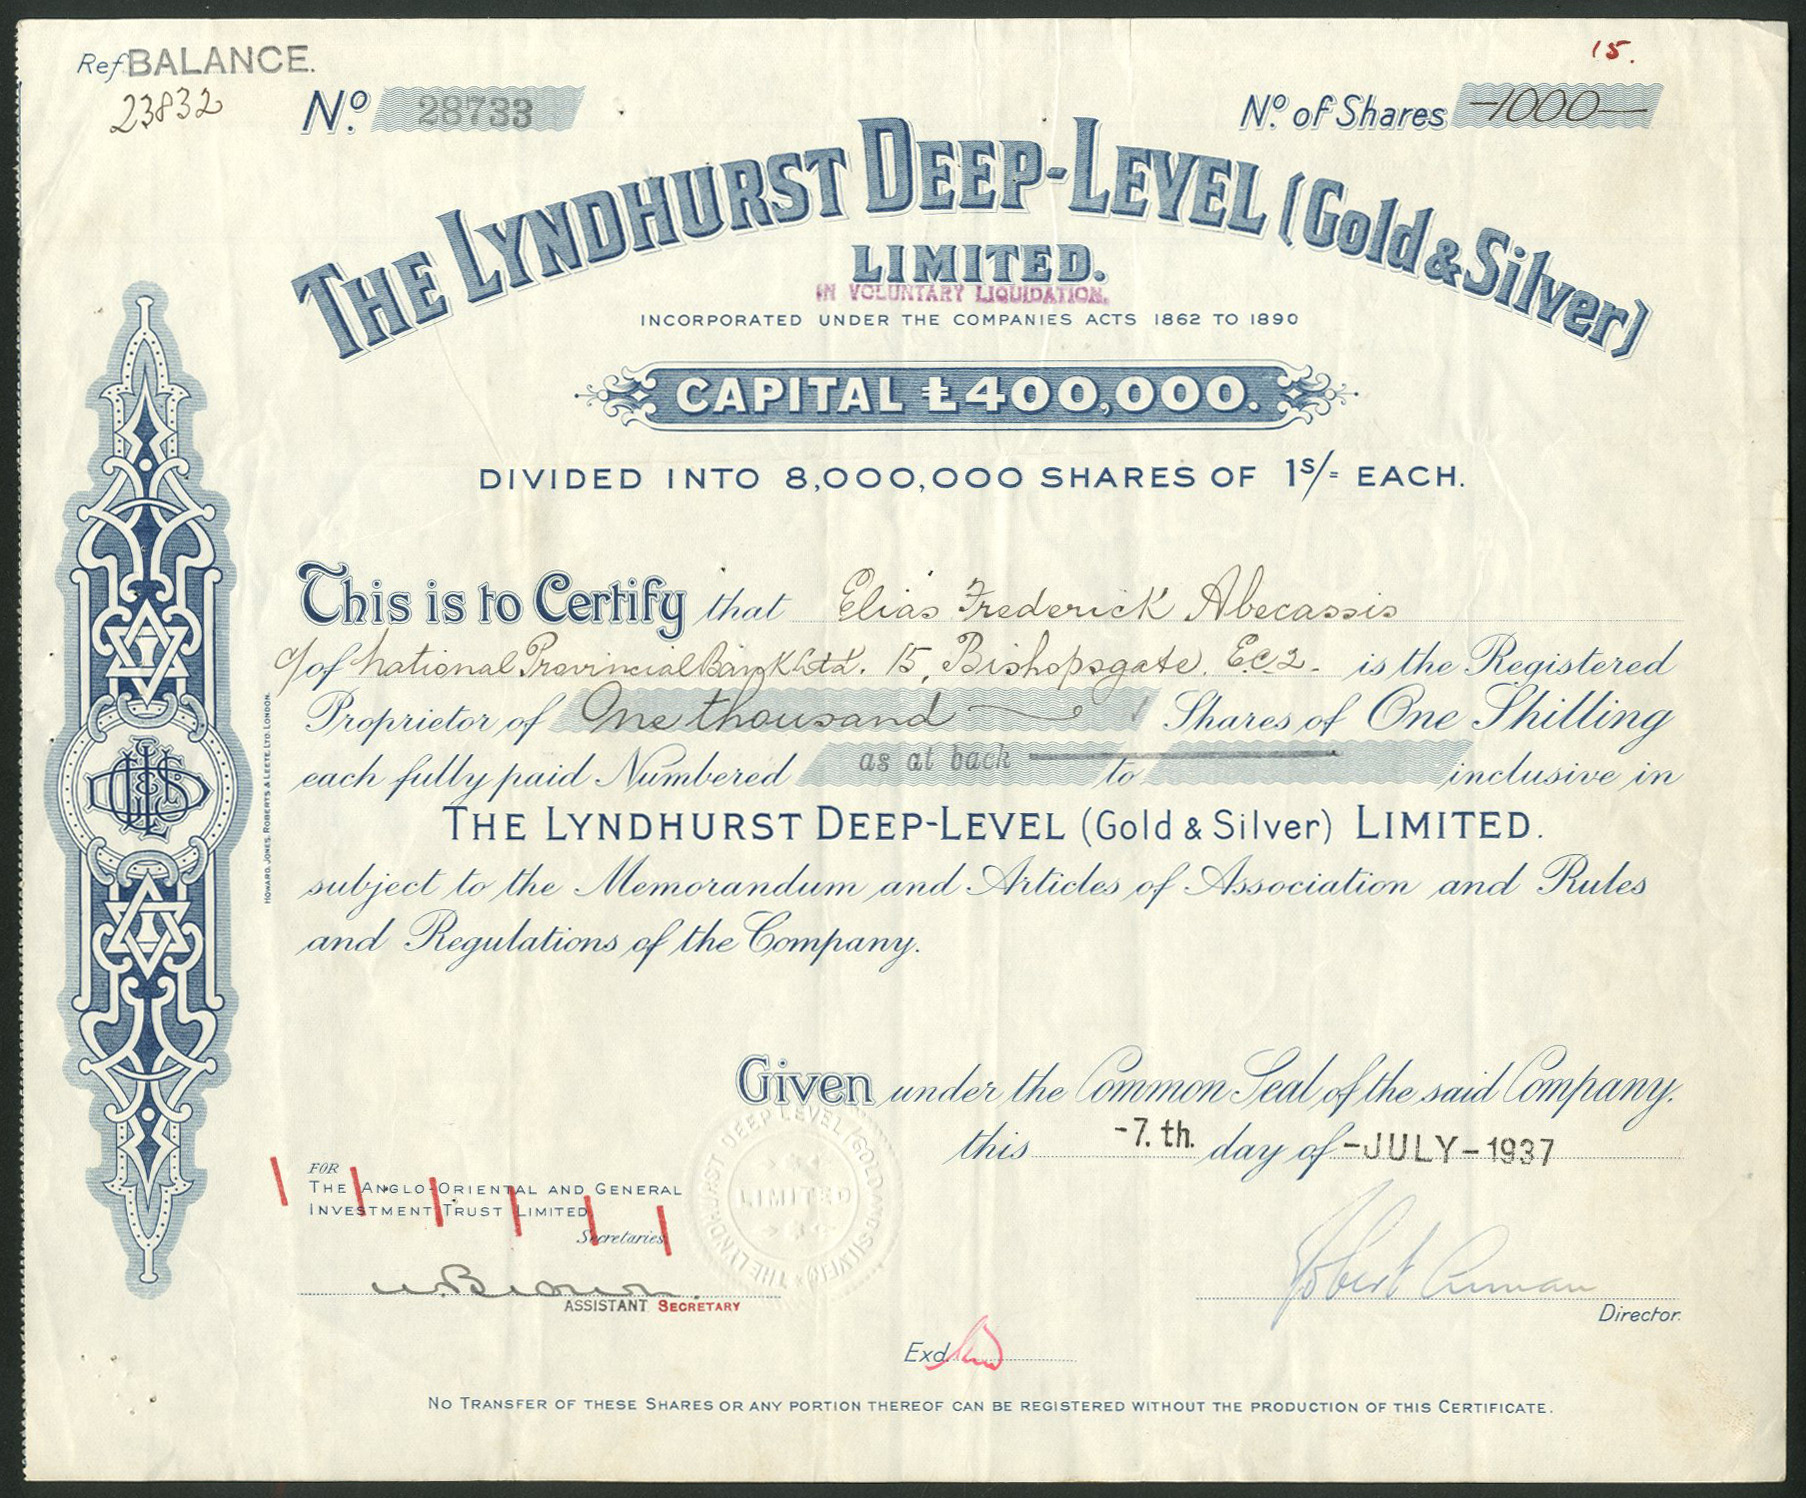 Ref. BALANCE.
23832
15.
Nº. 28733
Nº. of Shares -1000-
THE LYNDHURST DEEP-LEVEL (Gold & Silver)
LIMITED.
IN VOLUNTARY LIQUIDATION.
INCORPORATED UNDER THE COMPANIES ACTS 1862 TO 1890
CAPITAL £400,000.
DIVIDED INTO 8,000,000 SHARES OF 1s/= EACH.
This is to Certify that Elias Frederick Abecassis
c/of National Provincial Bank Ltd. 15, Bishopsgate. E.C.2. is the Registered
Proprietor of One thousand Shares of One Shilling
each fully paid Numbered as at back to inclusive in
THE LYNDHURST DEEP-LEVEL (Gold & Silver) LIMITED.
subject to the Memorandum and Articles of Association and Rules
and Regulations of the Company.
HOWARD, JONES, ROBERTS & LEETE, LTD. LONDON.
Given under the Common Seal of the said Company.
this -7.th. day of -JULY-1937
THE LYNDHURST DEEP LEVEL (GOLD AND SILVER)
LIMITED
FOR
THE ANGLO-ORIENTAL AND GENERAL
INVESTMENT TRUST LIMITED
Secretaries.
ASSISTANT SECRETARY
Robert
Director.
Exd.
NO TRANSFER OF THESE SHARES OR ANY PORTION THEREOF CAN BE REGISTERED WITHOUT THE PRODUCTION OF THIS CERTIFICATE.